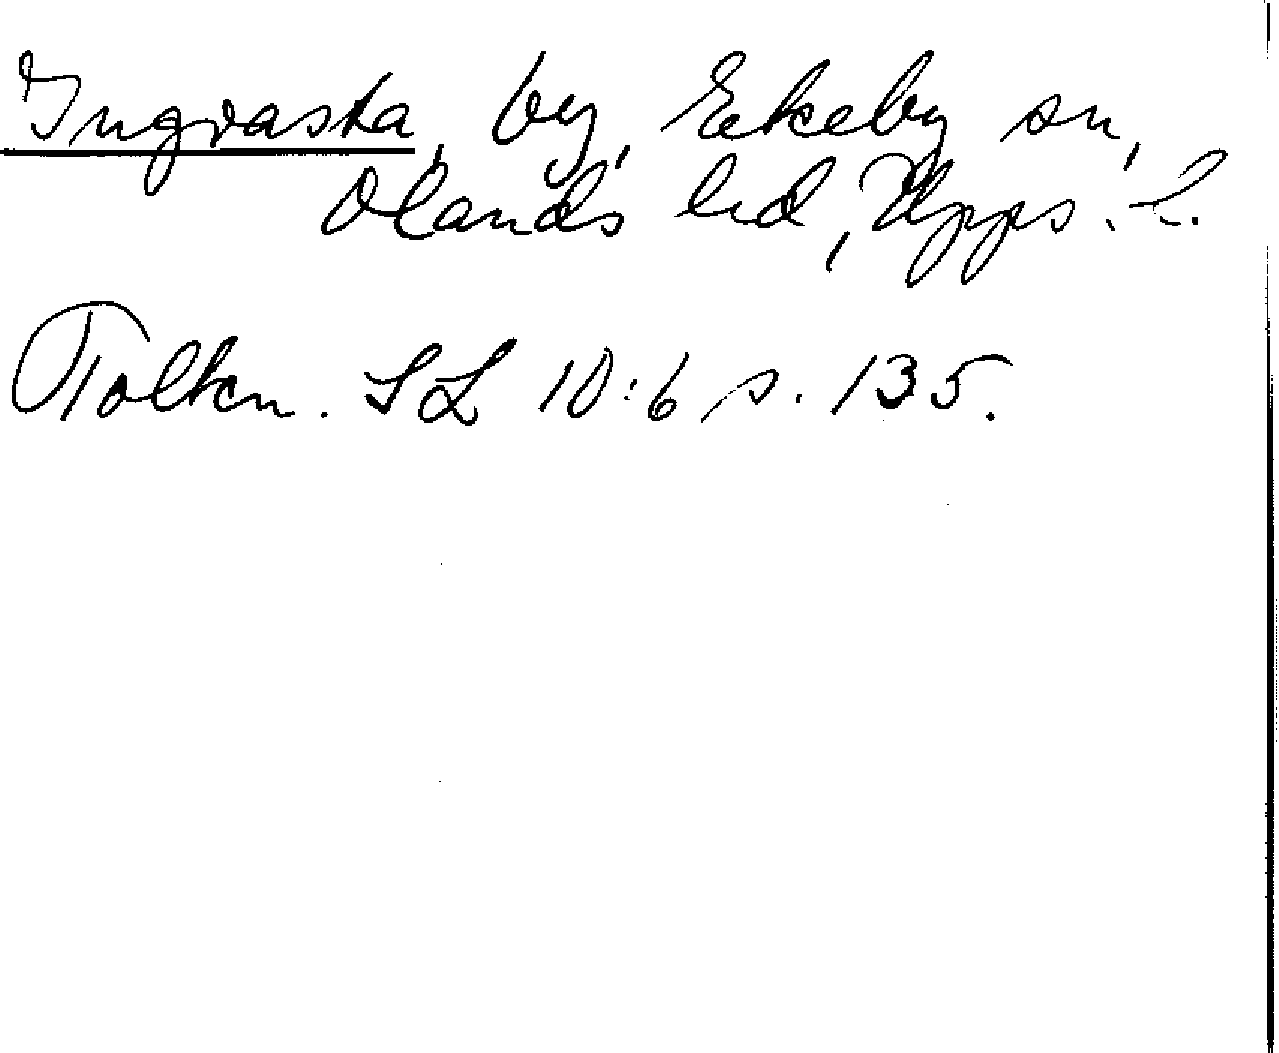 Ingvasta, by, Ekeby sn,
Olands hd, Upps. l.
Tolkn. SL 10:6 s. 135.